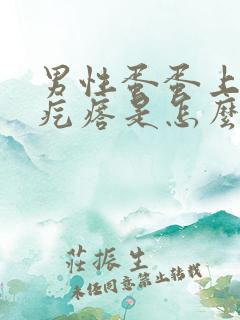 男性蛋蛋上
疙瘩是怎麼
莊振生
未經同意禁止轉載